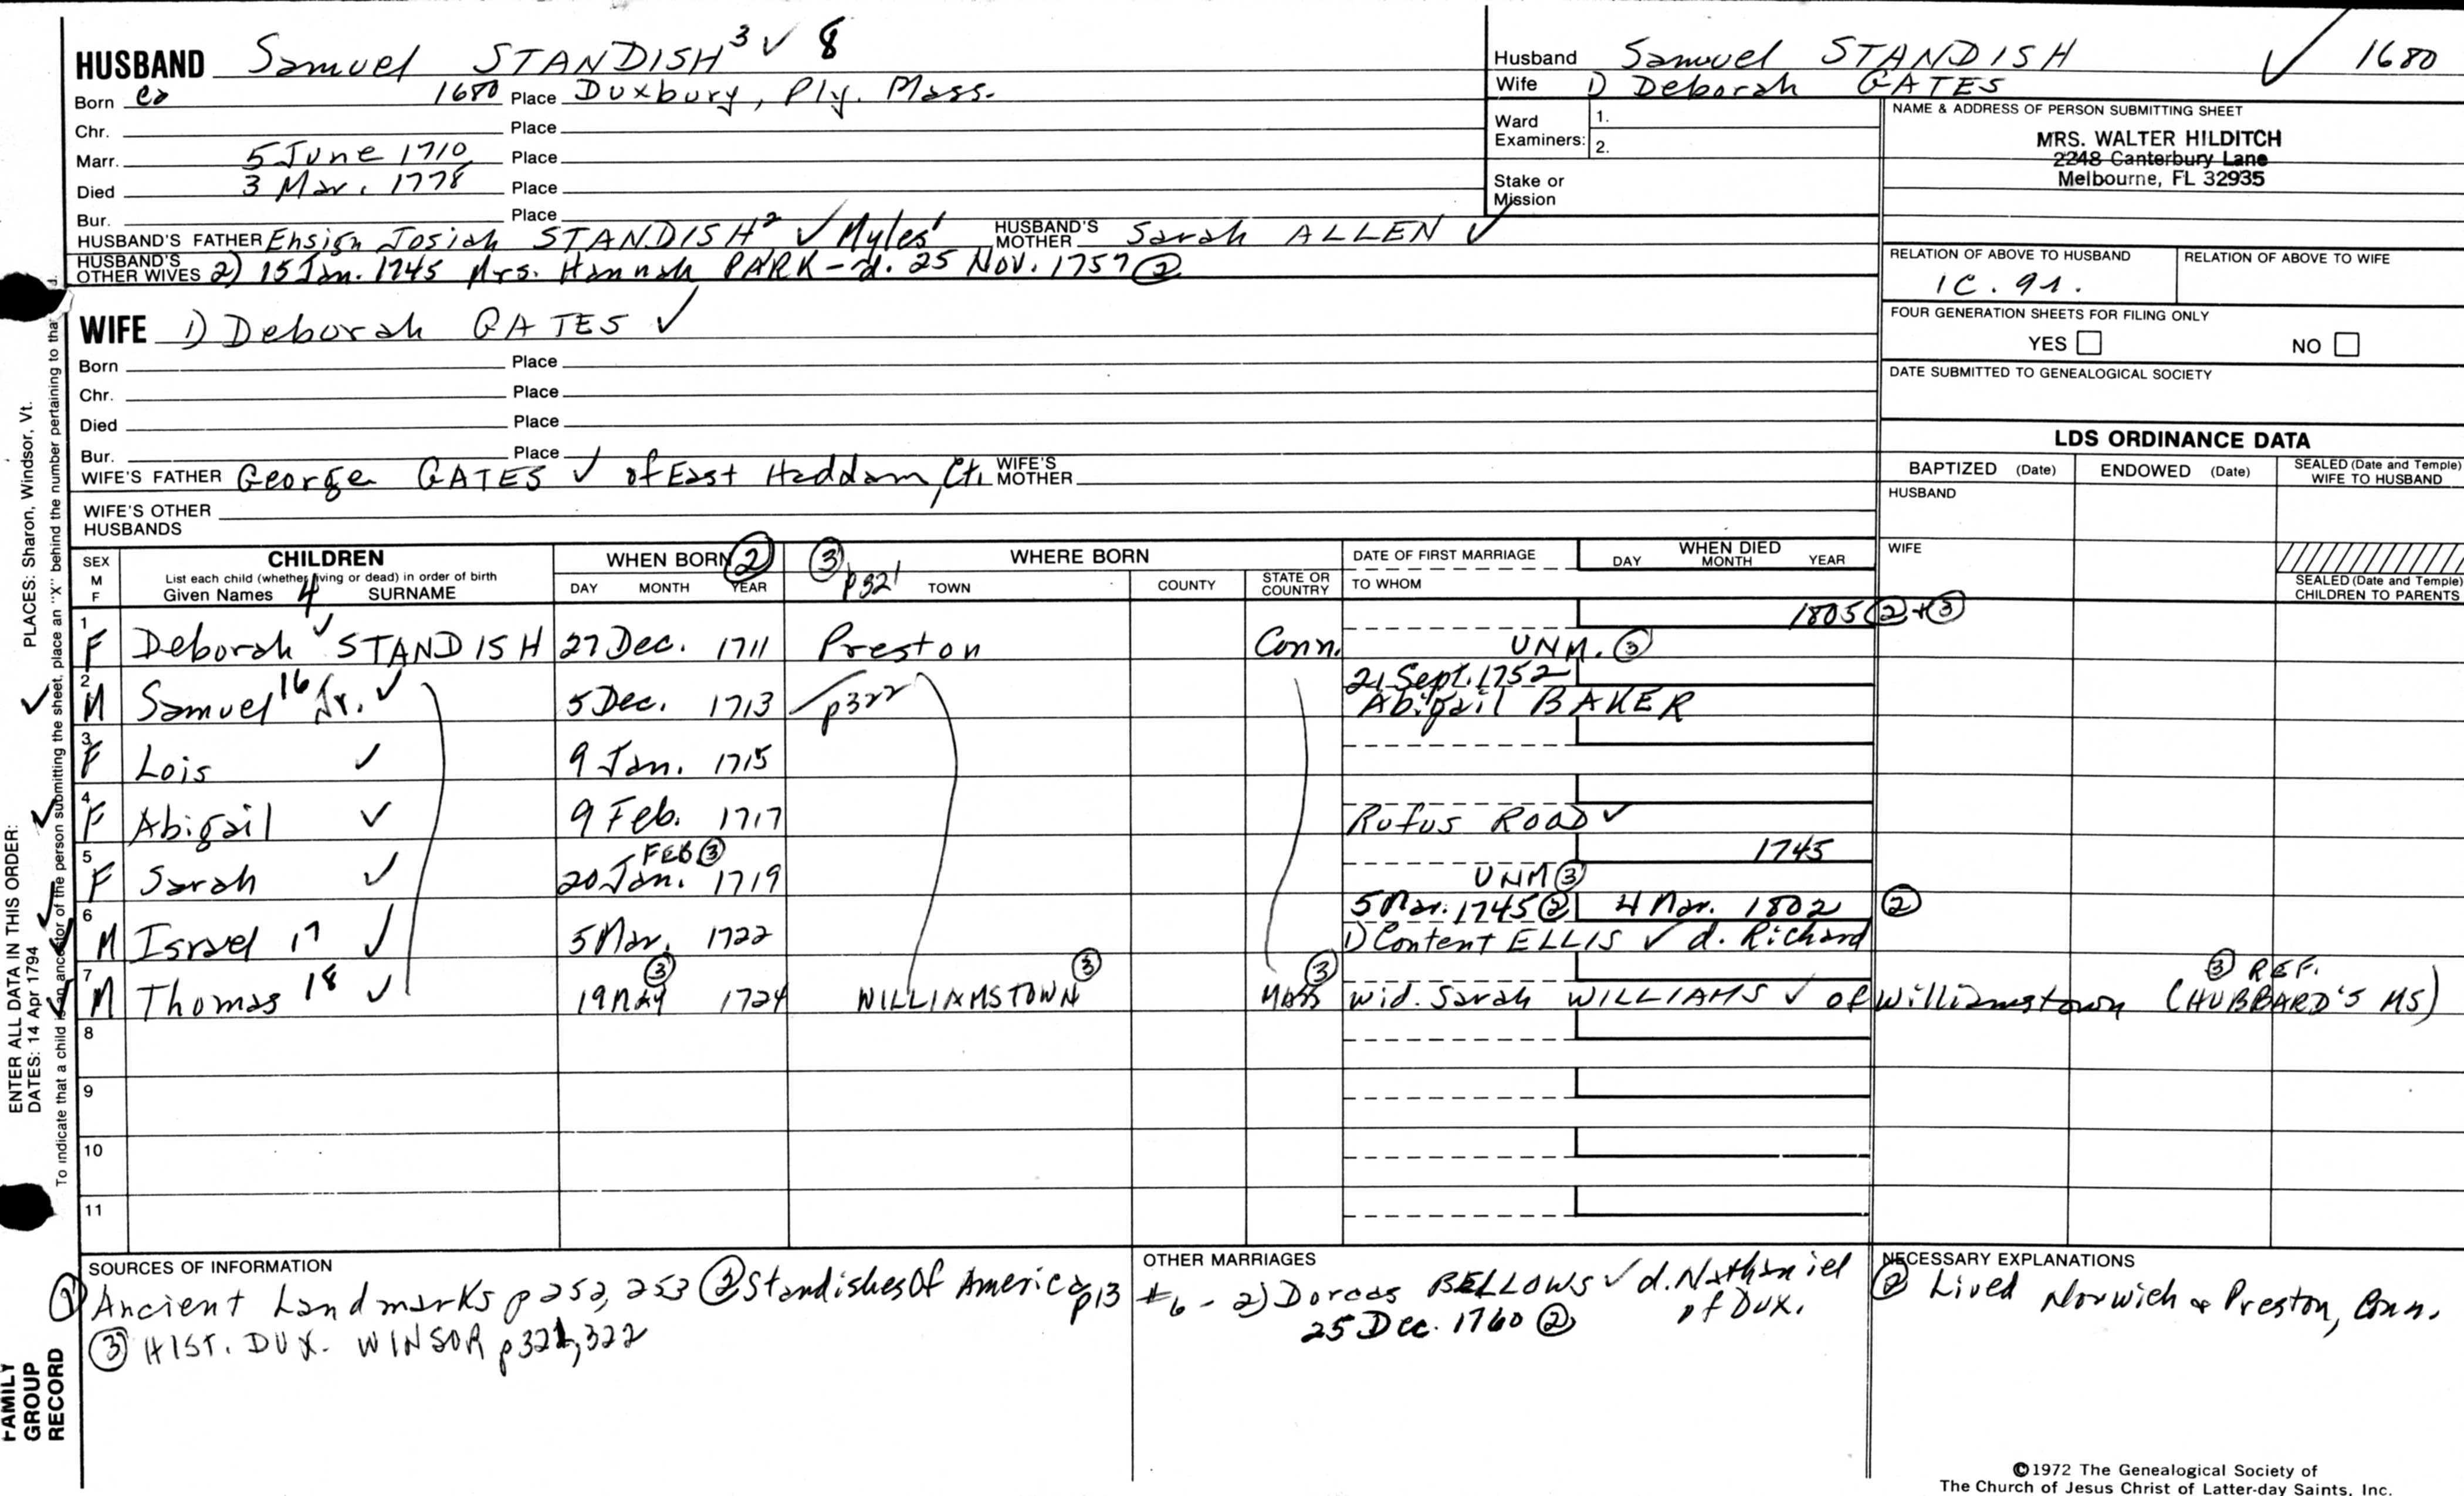 HUSBAND Samuel STANDISH³ ✓ 8
Born ca 1680 Place Duxbury, Ply. Mass.
Chr. Place
Marr. 5 June 1710 Place
Died 3 Mar. 1778 Place
Bur. Place
HUSBAND'S FATHER Ensign Josiah STANDISH² ✓ Myles¹ HUSBAND'S MOTHER Sarah ALLEN ✓
HUSBAND'S OTHER WIVES 2) 15 Jan. 1745 Mrs. Hannah PARK - d. 25 Nov. 1757 ②
WIFE 1) Deborah GATES ✓
Born Place
Chr. Place
Died Place
Bur. Place
WIFE'S FATHER George GATES ✓ of East Haddam, Ct. WIFE'S MOTHER
WIFE'S OTHER HUSBANDS
Husband Samuel STANDISH ✓ 1680
Wife 1) Deborah GATES
Ward Examiners: 1.
2.
Stake or Mission
NAME & ADDRESS OF PERSON SUBMITTING SHEET
MRS. WALTER HILDITCH
2248 Canterbury Lane
Melbourne, FL 32935
RELATION OF ABOVE TO HUSBAND RELATION OF ABOVE TO WIFE
1C. 9r.
FOUR GENERATION SHEETS FOR FILING ONLY
YES NO
DATE SUBMITTED TO GENEALOGICAL SOCIETY
LDS ORDINANCE DATA
BAPTIZED (Date) ENDOWED (Date) SEALED (Date and Temple) WIFE TO HUSBAND
HUSBAND
WIFE
SEALED (Date and Temple) CHILDREN TO PARENTS
SEX M F CHILDREN WHEN BORN ② ③ p321 WHERE BORN DATE OF FIRST MARRIAGE WHEN DIED
List each child (whether living or dead) in order of birth
Given Names 4 SURNAME DAY MONTH YEAR TOWN COUNTY STATE OR COUNTRY TO WHOM DAY MONTH YEAR
1805 ② + ③
1 F Deborah ✓ STANDISH 27 Dec. 1711 Preston Conn. UNM. ③
21 Sept. 1752
2 M Samuel 16 Jr. ✓ 5 Dec. 1713 p322 Abigail BAKER
3 F Lois ✓ 9 Jan. 1715
4 F Abigail ✓ 9 Feb. 1717 Rufus ROAD ✓
FEB ③ 1745
5 F Sarah ✓ 20 Jan. 1719 UNM ③
5 Mar. 1745 ② 4 Mar. 1802 ②
6 M Israel 17 ✓ 5 Mar. 1722 1) Content ELLIS ✓ d. Richard
③ ③ ③ ③ REF.
7 M Thomas 18 ✓ 19 May 1724 WILLIAMSTOWN MASS Wid. Sarah WILLIAMS ✓ of Williamstown (HUBBARD'S MS)
8
9
10
11
SOURCES OF INFORMATION
① Ancient Landmarks p 252, 253 ② Standishes Of America p13
③ HIST. DUX. WINSOR p321, 322
OTHER MARRIAGES
#6 - 2) Dorcas BELLOWS ✓ d. Nathaniel of Dux.
25 Dec. 1760 ②
NECESSARY EXPLANATIONS
② Lived Norwich & Preston, Conn.
©1972 The Genealogical Society of
The Church of Jesus Christ of Latter-day Saints, Inc.
PLACES: Sharon, Windsor, Vt.
ENTER ALL DATA IN THIS ORDER:
DATES: 14 Apr 1794
To indicate that a child is an ancestor of the person submitting the sheet, place an "X" behind the number pertaining to tha
FAMILY GROUP RECORD